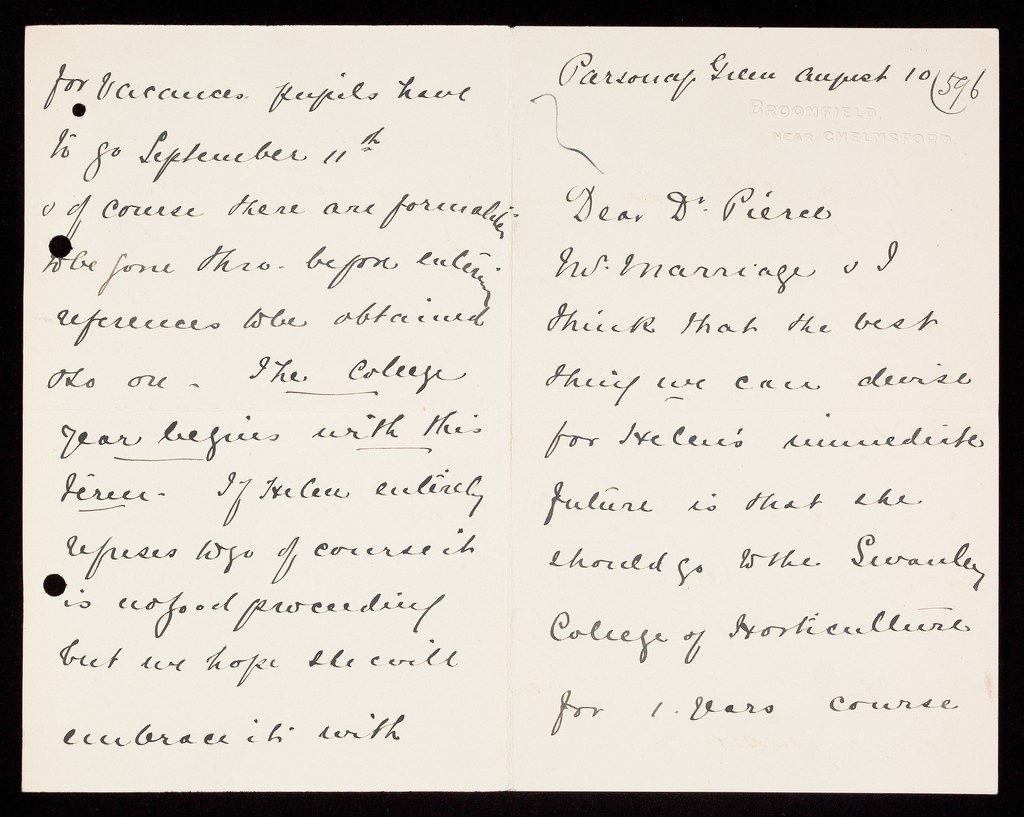 Parsonage Green August 10
596
BROOMFIELD,
NEAR CHELMSFORD
Dear Dr. Pierce
Mr. Marriage & I
think that the best
thing we can devise
for Helen's immediate
future is that she
should go to the Swanley
College of Horticulture
for 1. years course
for Vacances pupils have
to go September 11th
& of course there are formalities
to be gone thro. before entering
references to be obtained
& so on - The College
year begins with this
term. If Helen entirely
refuses to go of course it
is no good proceeding
but we hope she will
embrace it with